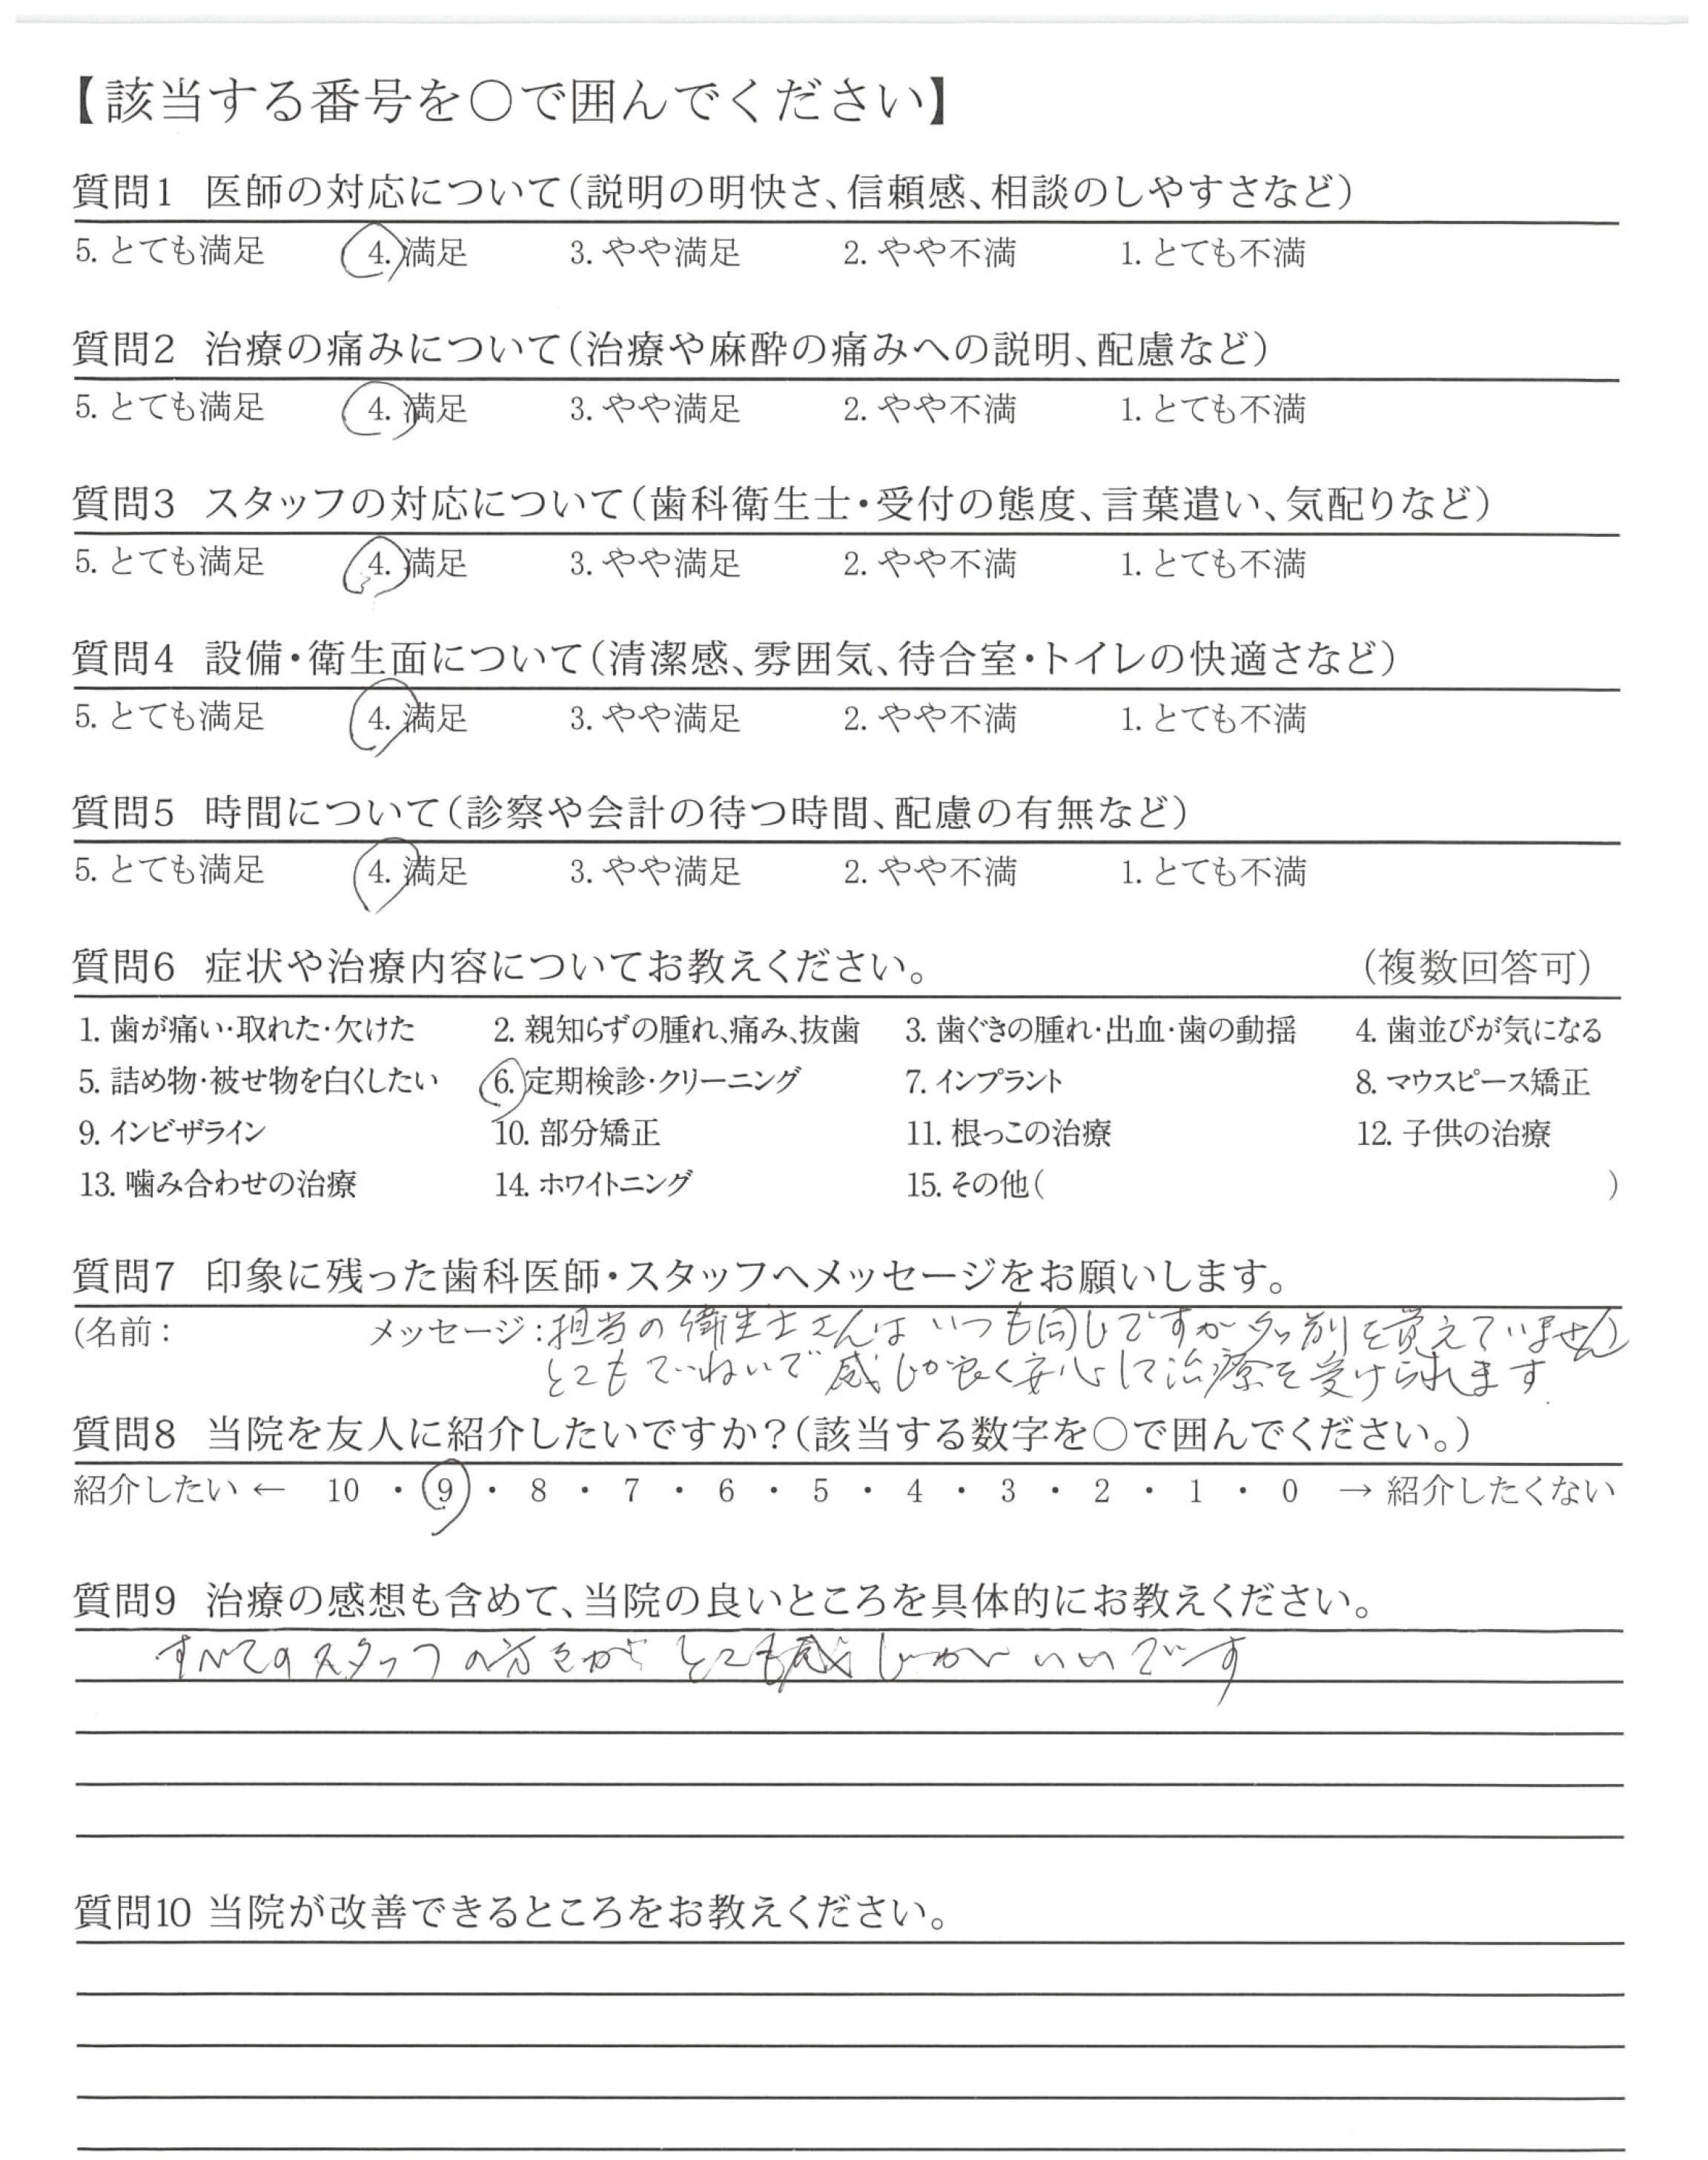 【該当する番号を○で囲んでください】
質問1 医師の対応について(説明の明快さ、信頼感、相談のしやすさなど)
5. とても満足 4. 満足 3. やや満足 2. やや不満 1. とても不満
質問2 治療の痛みについて(治療や麻酔の痛みへの説明、配慮など)
5. とても満足 4. 満足 3. やや満足 2. やや不満 1. とても不満
質問3 スタッフの対応について(歯科衛生士・受付の態度、言葉遣い、気配りなど)
5. とても満足 4. 満足 3. やや満足 2. やや不満 1. とても不満
質問4 設備・衛生面について(清潔感、雰囲気、待合室・トイレの快適さなど)
5. とても満足 4. 満足 3. やや満足 2. やや不満 1. とても不満
質問5 時間について(診察や会計の待つ時間、配慮の有無など)
5. とても満足 4. 満足 3. やや満足 2. やや不満 1. とても不満
質問6 症状や治療内容についてお教えください。 (複数回答可)
1. 歯が痛い・取れた・欠けた 2. 親知らずの腫れ、痛み、抜歯 3. 歯ぐきの腫れ・出血・歯の動揺 4. 歯並びが気になる
5. 詰め物・被せ物を白くしたい 6. 定期検診・クリーニング 7. インプラント 8. マウスピース矯正
9. インビザライン 10. 部分矯正 11. 根っこの治療 12. 子供の治療
13. 噛み合わせの治療 14. ホワイトニング 15. その他( )
質問7 印象に残った歯科医師・スタッフへメッセージをお願いします。
(名前: メッセージ:担当の衛生士さんはいつも同じですが名前を覚えていません)
とてもていねいで感じが良く安心して治療を受けられます.
質問8 当院を友人に紹介したいですか?(該当する数字を○で囲んでください。)
紹介したい ← 10 ・ 9 ・ 8 ・ 7 ・ 6 ・ 5 ・ 4 ・ 3 ・ 2 ・ 1 ・ 0 → 紹介したくない
質問9 治療の感想も含めて、当院の良いところを具体的にお教えください。
すべてのスタッフの方々がとても感じがいいです
質問10 当院が改善できるところをお教えください。